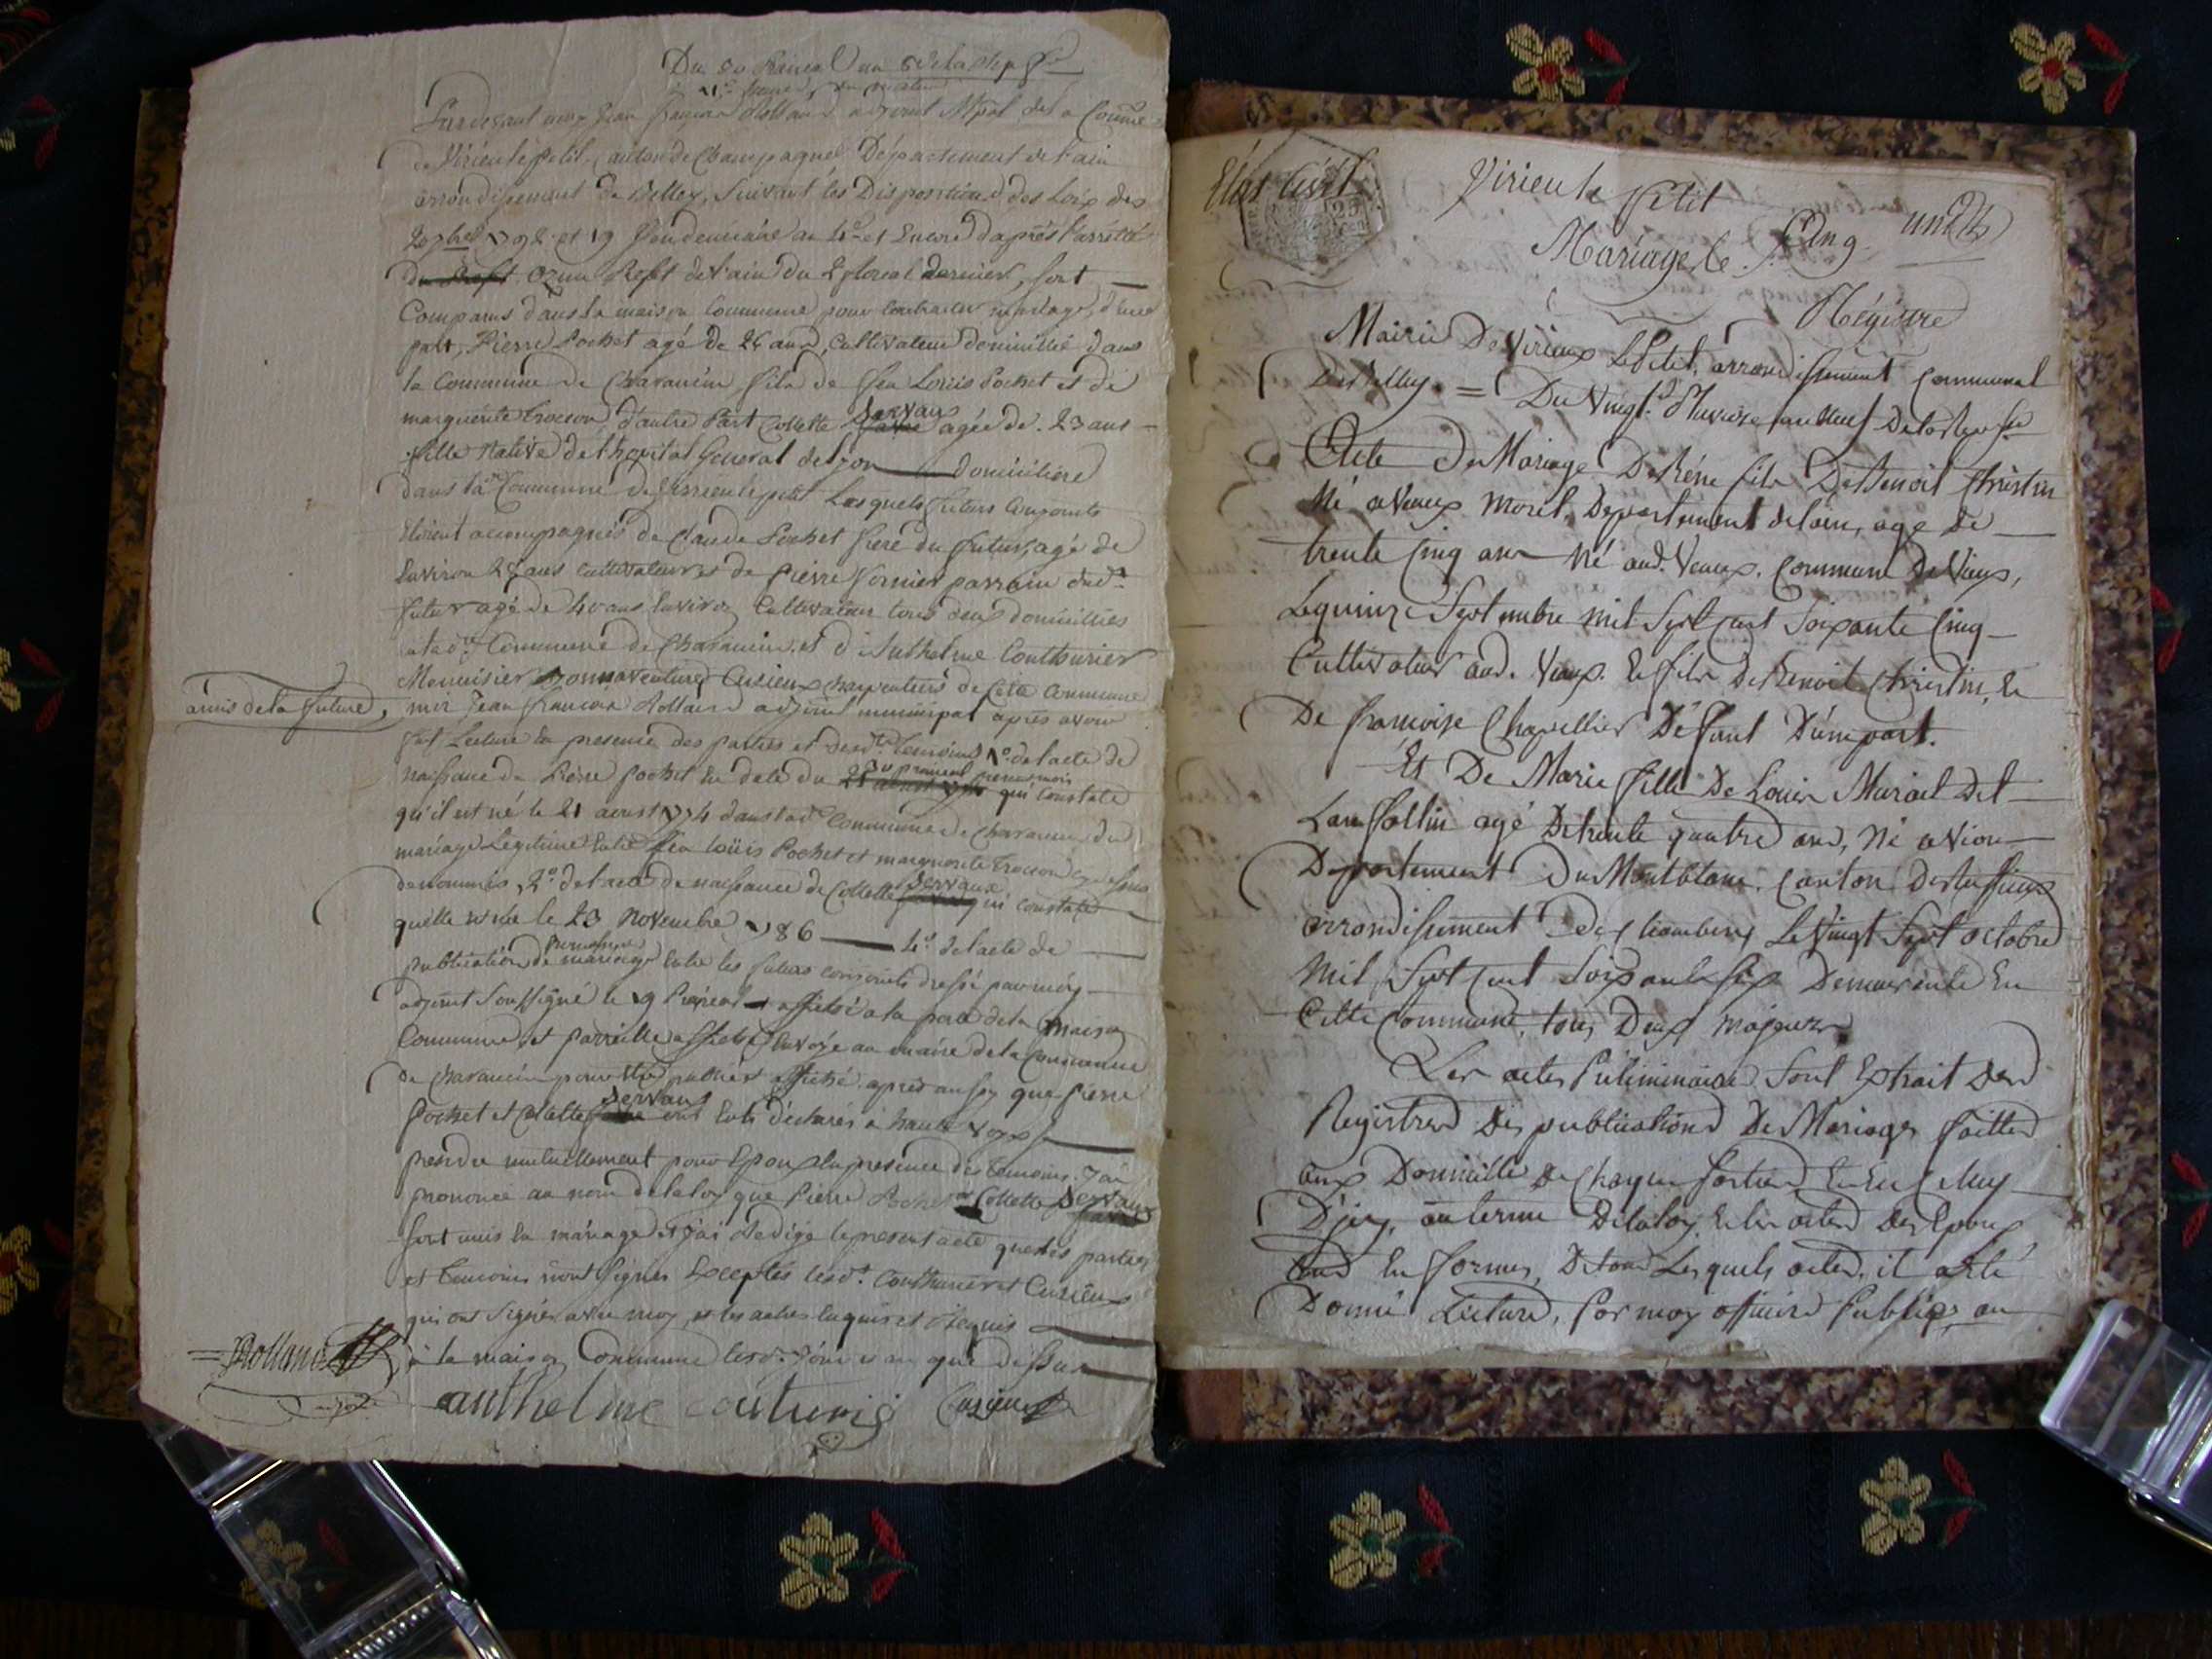 Du 30 Prairial an 8 de la Rep.
Pardevant moy Jean françois Rolland adjoint Mpal de la Comune
de Virieu le petit, canton de Champagne Département de l'ain
arrondissement de Belley, suivant les Dispositions des Loix des
20 7bre 1792 et 19 Vendemiaire an 4e et Encore d'après l'arrêté
du Prefet de l'ain du floreal dernier, sont
Comparus dans la maison Commune pour Contracter mariage, d'une
part, Pierre Pochet agé de 26 ans, Cultivateur domicilié dans
la Commune de Charancin fils de feu Louis Pochet et de
marguerite Trocon d'autre Part Collette Servaux agée de 23 ans
fille Native de l'hopital General de Lyon domiciliée
dans la de Commune de Virieu le petit Lesquels futurs Conjoints
Etoient accompagnés de Claude Pochet frere du futur, agé de
Environ 28 ans cultivateur et de Pierre Vernier parrain dud.
futur agé de 40 ans Environ Cultivateur tous deux domiciliés
lad. Commune de Charancin et d'Anthelme Couthurier
Menuisier Bonnaventure Cusieux charpentiers de Cette Commune
amis de la future,
moi Jean francois Rolland adjoint municipal après avoir
fait Lecture En presence des parties et desd. temoins 1o de l'acte de
naissance de Pierre Pochet En date du 30 prairial present mois qui Constate
qu'il est né le 21 aoust 1774 dans lad. Commune de Charancin du
mariage Legitime Entre feu Louis Pochet et marguerite Trocon cy dessus
denommés, 2o de l'acte de naissance de Collette Servaux qui Constate
quelle est née le 23 Novembre 1786 4o de l'acte de
publication de promesse mariage Entre les futurs conjoints dressé par moy
adjoint Soussigné le 19 Prairial et affiché a la porte de la maison
Commune, et pareille affiche Envoyé au maire de la Commune
de Charancin pour Etre publié et affiché après aussy que Pierre
Pochet et Collette Servaux ont Eus déclarés à haute voix
prendre mutuellement pour Epoux En presence des temoins. J'ai
prononcé au nom de la loy que Pierre Pochet et Collette Servaux
sont unis En mariage et j'ai Redigé le present acte que les parties
et temoins n'ont signés Exceptés lesd. Couthurier et Cusieux
qui ont Signés avec moy, et les autres Enquis et Requis
à la maison Commune lesd. jour et an que dessus
Rolland
adjoint
anthelme couturié Cusieux
Etat Civil
Virieu le Petit
Mariage
Cinq
Régistre
Mairie De Virieux Le Petit, arrondissement Communal
De Belley = Du Vingt Pluviose an Neuf De la Rep.
Acte Du Mariage De Réne fils De Benoit Christin
Né a Vaux Morel, Departement de lain, age De
trente Cinq ans Né aud. Vaux. Commune De Vieux,
Le quinze Septembre mil Sept Cent Soixante Cinq
Cultivateur aud. Vaux. Le fils De Benoit Christin, Et
De francoise Chapellier Défunt D'une part.
Et De Marie fille De Louis
agé De trente quatre ans, Né a
Departement Du Montblanc, Canton De Ruffieux
arrondissement De Chambery Le Vingt Sept octobre
Mil Sept Cent Soixante Six Demeurante En
Cette Commune, tous Deux Majeurs
Les actes Préliminaires Sont Extrait Des
Registres Des publications De Mariages faittes
aux Domicille De Chaque Parties
au terme De la loy Et les actes Des Epoux
En formes, De tous Lesquels actes, il a été
Donné Lecture, Par moy officier Publique, au